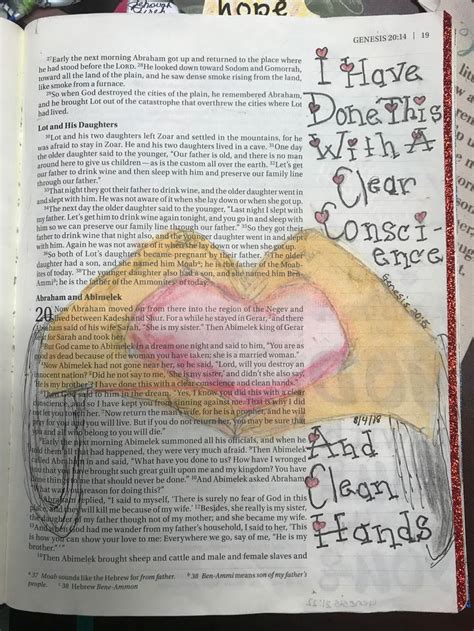 hope
GENESIS 20:14 | 19
27Early the next morning Abraham got up and returned to the place where
he had stood before the LORD. 28He looked down toward Sodom and Gomorrah,
toward all the land of the plain, and he saw dense smoke rising from the land,
like smoke from a furnace.
29So when God destroyed the cities of the plain, he remembered Abraham,
and he brought Lot out of the catastrophe that overthrew the cities where Lot
had lived.
Lot and His Daughters
30Lot and his two daughters left Zoar and settled in the mountains, for he
was afraid to stay in Zoar. He and his two daughters lived in a cave. 31One day
the older daughter said to the younger, "Our father is old, and there is no man
around here to give us children—as is the custom all over the earth. 32Let's get
our father to drink wine and then sleep with him and preserve our family line
through our father."
33That night they got their father to drink wine, and the older daughter went in
and slept with him. He was not aware of it when she lay down or when she got up.
34The next day the older daughter said to the younger, "Last night I slept with
my father. Let's get him to drink wine again tonight, and you go in and sleep with
him so we can preserve our family line through our father." 35So they got their
father to drink wine that night also, and the younger daughter went in and slept
with him. Again he was not aware of it when she lay down or when she got up.
36So both of Lot's daughters became pregnant by their father. 37The older
daughter had a son, and she named him Moab; he is the father of the Moab-
ites of today. 38The younger daughter also had a son, and she named him Ben-
Ammi; he is the father of the Ammonites of today.
Abraham and Abimelek
20 Now Abraham moved on from there into the region of the Negev and
lived between Kadesh and Shur. For a while he stayed in Gerar, 2and there
Abraham said of his wife Sarah, "She is my sister." Then Abimelek king of Gerar
sent for Sarah and took her.
3But God came to Abimelek in a dream one night and said to him, "You are as
good as dead because of the woman you have taken; she is a married woman."
4Now Abimelek had not gone near her, so he said, "Lord, will you destroy an
innocent nation? 5Did he not say to me, 'She is my sister,' and didn't she also say,
'He is my brother'? I have done this with a clear conscience and clean hands."
6Then God said to him in the dream, "Yes, I know you did this with a clear
conscience, and so I have kept you from sinning against me. That is why I did
not let you touch her. 7Now return the man's wife, for he is a prophet, and he will
pray for you and you will live. But if you do not return her, you may be sure that
you and all who belong to you will die."
8Early the next morning Abimelek summoned all his officials, and when he
told them all that had happened, they were very much afraid. 9Then Abimelek
called Abraham in and said, "What have you done to us? How have I wronged
you that you have brought such great guilt upon me and my kingdom? You have
done things to me that should never be done." 10And Abimelek asked Abraham,
"What was your reason for doing this?"
11Abraham replied, "I said to myself, 'There is surely no fear of God in this
place, and they will kill me because of my wife.' 12Besides, she really is my sister,
the daughter of my father though not of my mother; and she became my wife.
13And when God had me wander from my father's household, I said to her, 'This
is how you can show your love to me: Everywhere we go, say of me, "He is my
brother."'"
14Then Abimelek brought sheep and cattle and male and female slaves and
a 37 Moab sounds like the Hebrew for from father.
b 38 Ben-Ammi means son of my father's
people.
c 38 Hebrew Bene-Ammon
I Have
Done This
With A
Clear
Consci-
ence
Genesis 20:5
8/4/18
And
Clean
Hands